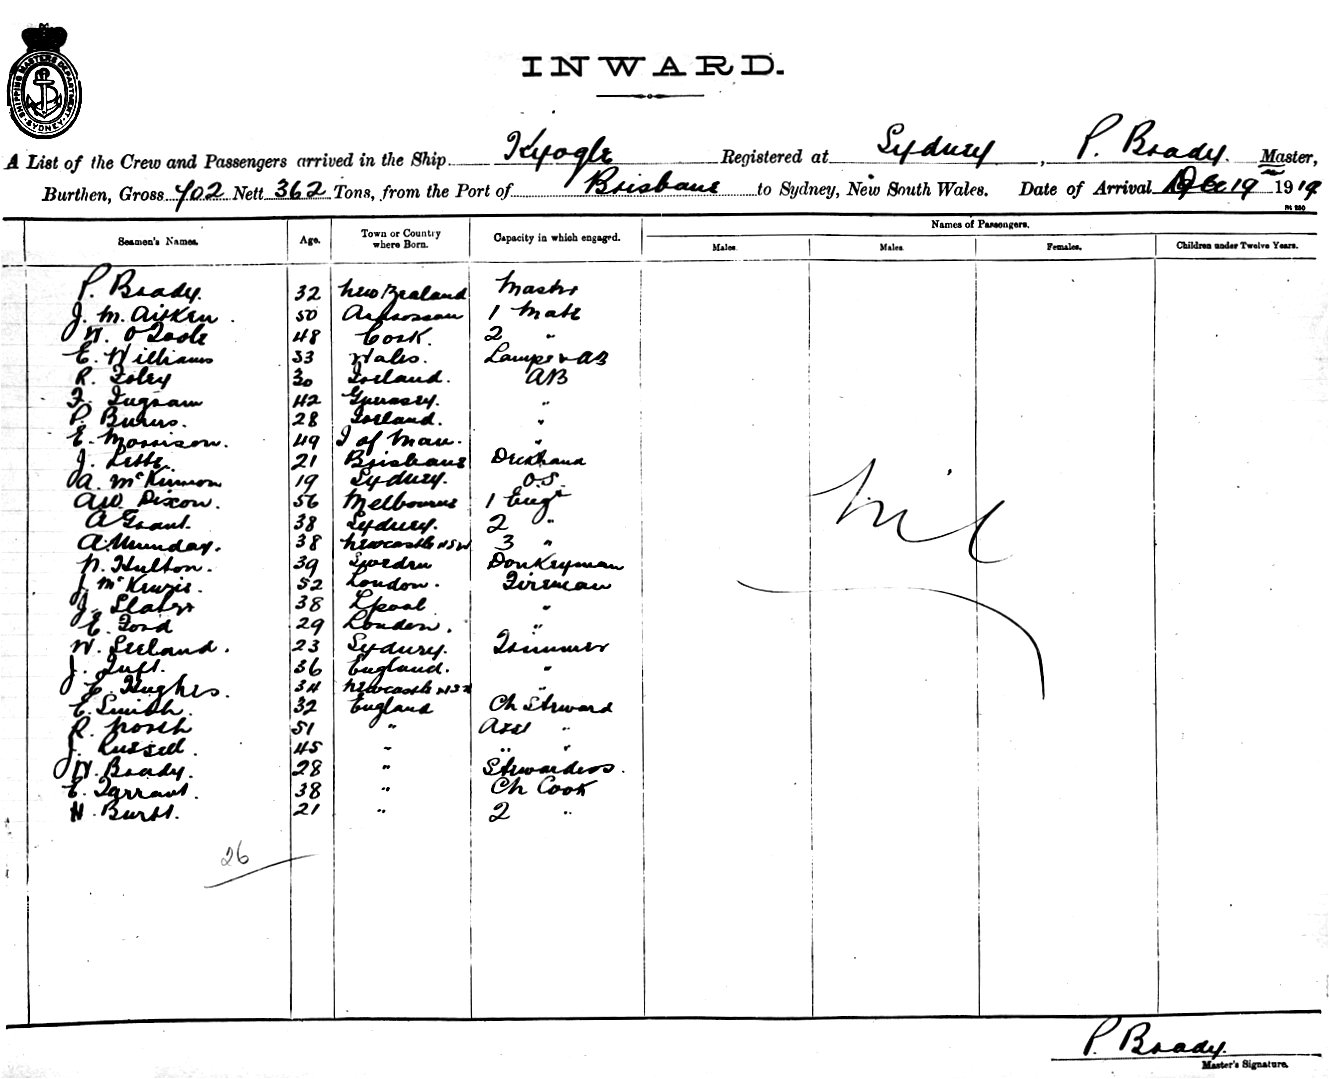 SHIPPING MASTERS DEPARTMENT. SYDNEY.
INWARD.
A List of the Crew and Passengers arrived in the Ship Kyogle Registered at Sydney, P. Brady. Master,
Burthen, Gross 702 Nett 362 Tons, from the Port of Brisbane to Sydney, New South Wales. Date of Arrival Dec 19 1919
Names of Passengers.
Seamen's Names. Age. Town or Country where Born. Capacity in which engaged. Males. Males. Females. Children under Twelve Years.
P. Brady. 32 New Zealand Master
J. M. Aitken. 50 Ardrossan 1 Mate
W. O'Toole 48 Cork. 2 "
E. Williams 33 Wales. Lamps & AB
R. Foley 30 Ireland. AB
F. Ingram 42 Guernsey. "
P. Burns. 28 Ireland. "
E. Morrison. 49 I of Man. "
J. 21 Brisbane Deckhand
A. McKinnon 19 Sydney. O.S.
AW. Dixon. 56 Melbourne 1 Engr
A Grant. 38 Sydney. 2 "
A Munday. 38 Newcastle NSW 3 "
N. Hulton. 39 Sweden Donkeyman
J. McKenzie. 52 London. Fireman
J. Slater 38 Lpool "
E. Ford 29 London. "
W. Leeland. 23 Sydney. Trimmer
J. Tuft. 36 England. "
E. Hughes. 34 Newcastle NSW "
E. Smith. 32 England Ch Steward
R. North 51 " Asst "
J. Russell. 45 " " "
W. Brady. 28 " Stewardess.
E. Tarrant. 38 " Ch Cook
H. Burtt. 21 " 2 "
nil
26
P. Brady.
Master's Signature.